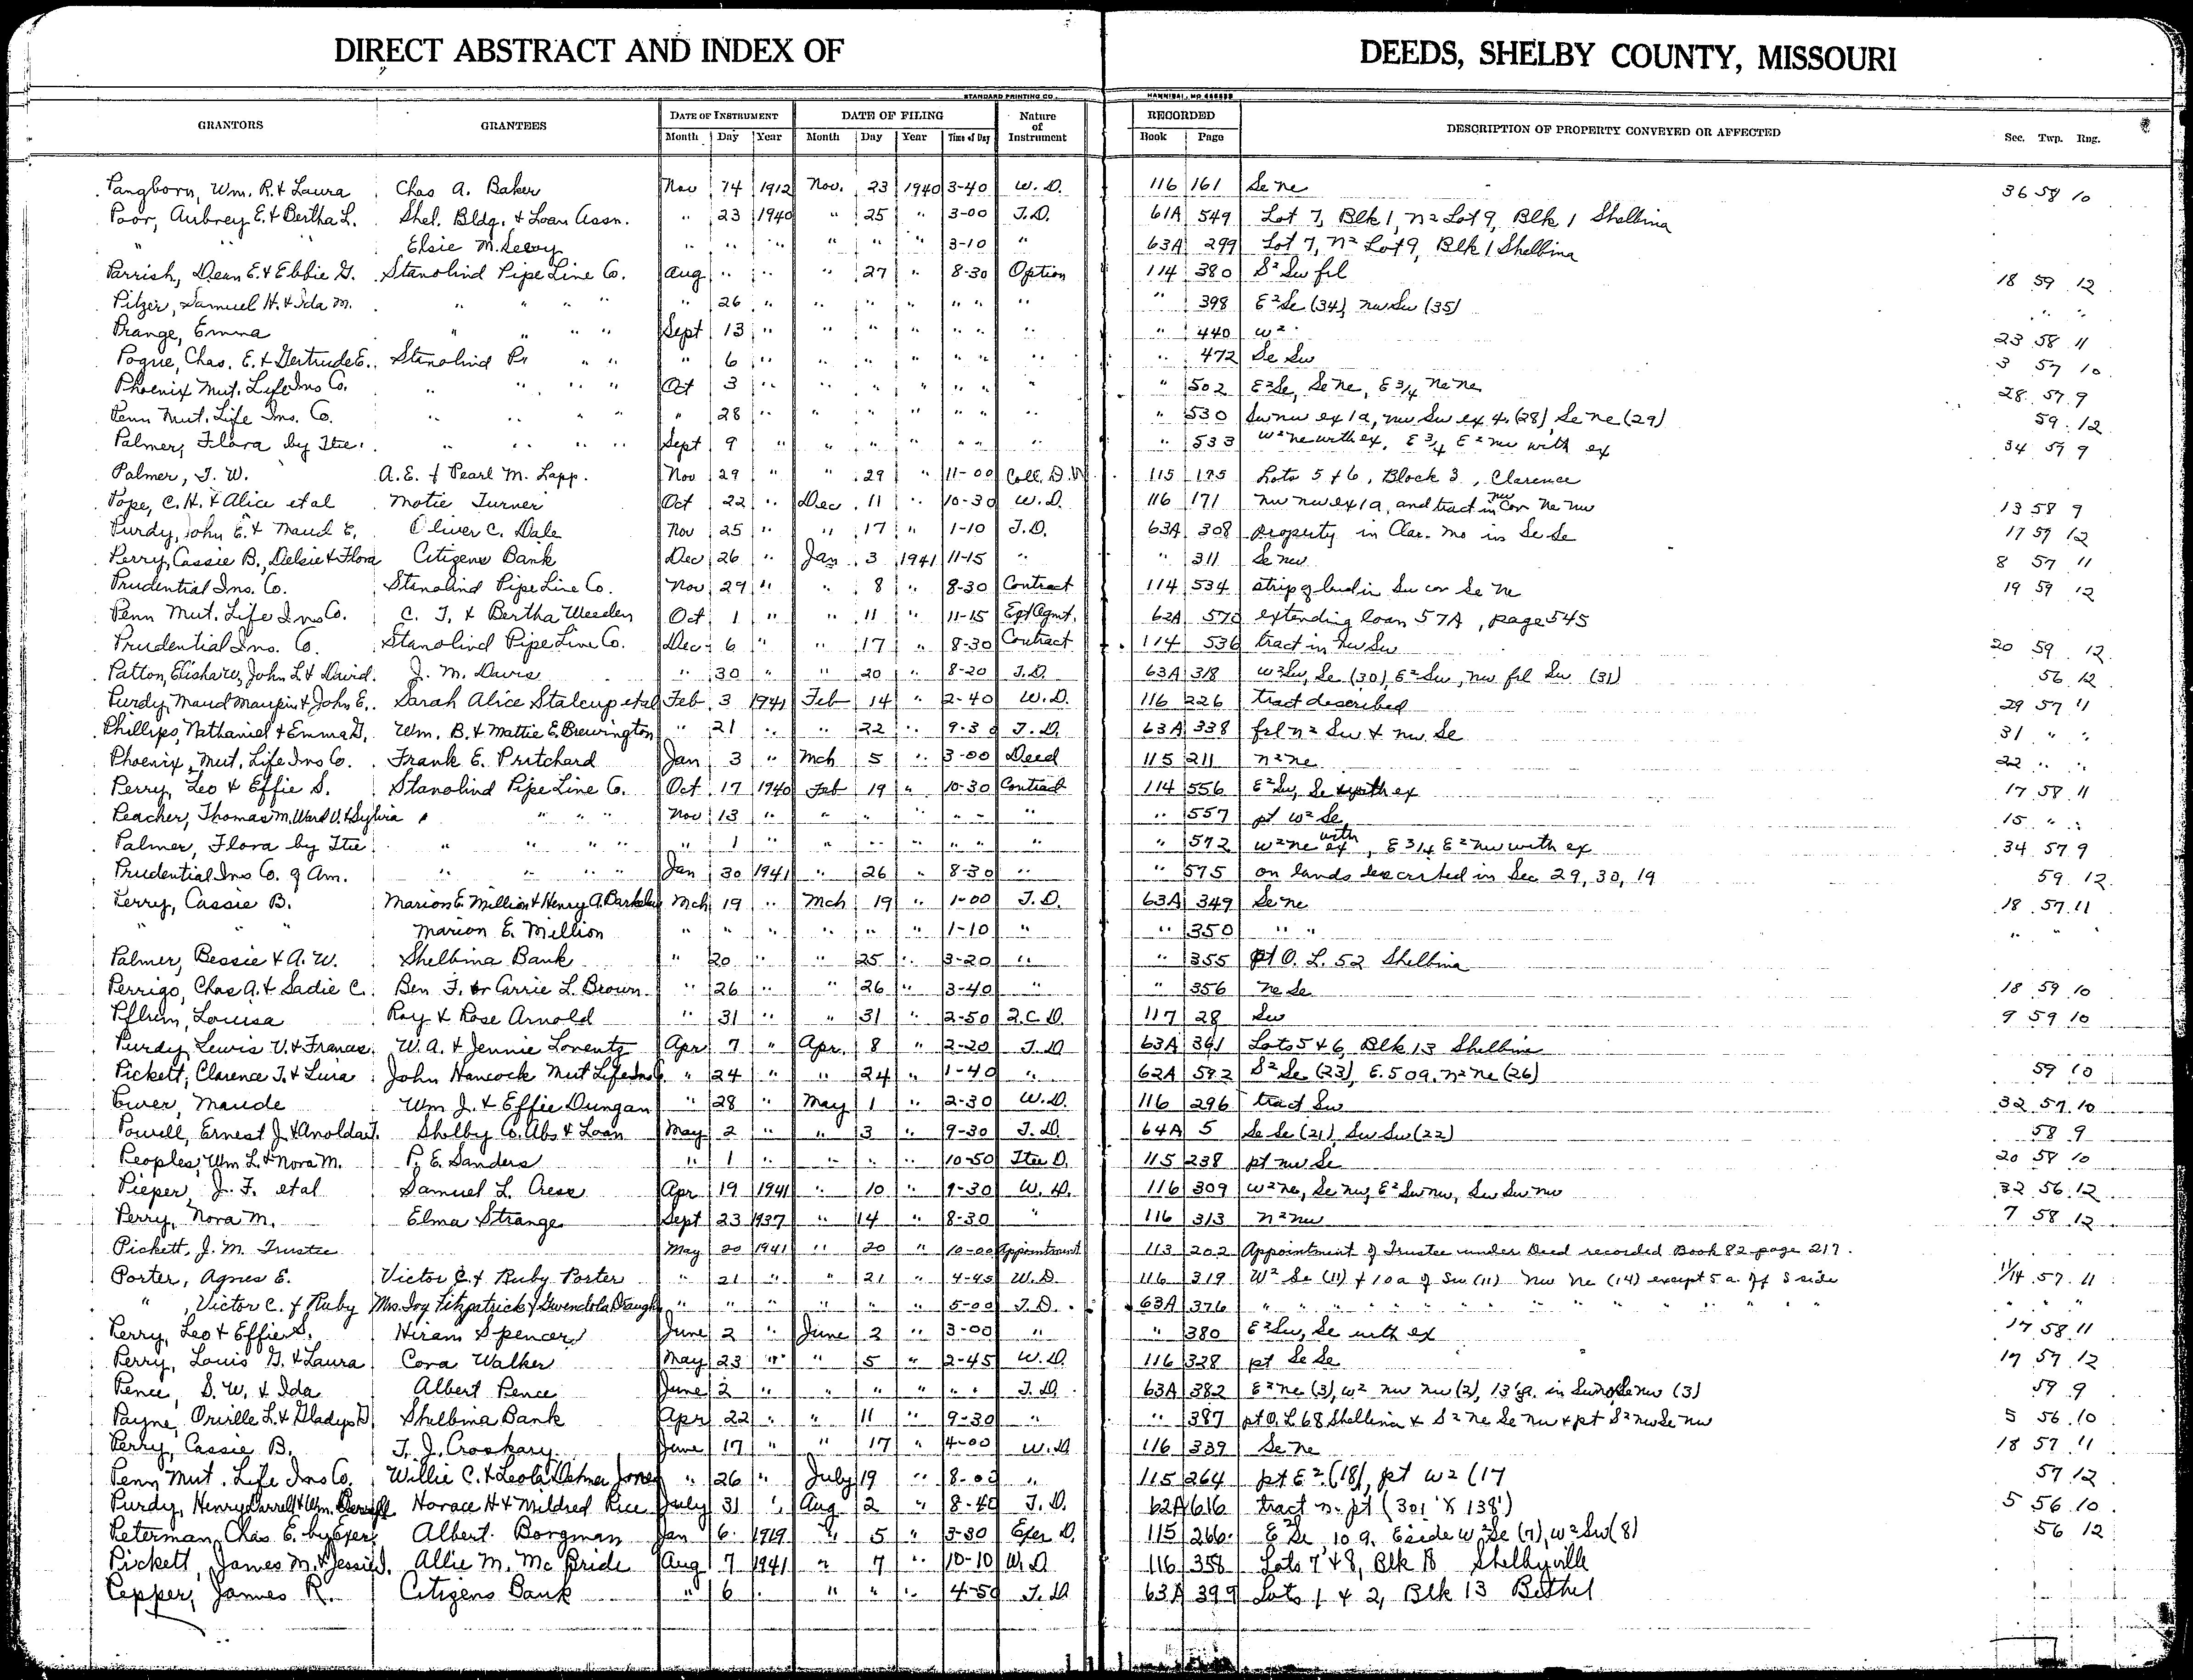 DIRECT ABSTRACT AND INDEX OF DEEDS, SHELBY COUNTY, MISSOURI
STANDARD PRINTING CO. HANNIBAL, MO
GRANTORS GRANTEES DATE OF INSTRUMENT DATE OF FILING Nature of Instrument RECORDED DESCRIPTION OF PROPERTY CONVEYED OR AFFECTED Sec. Twp. Rng.
Month Day Year Month Day Year Time of Day Book Page
Pangborn, Wm. R. & Laura Chas A. Baker Nov 14 1912 Nov. 23 1940 3-40 W. D. 116 161 Se ne 36 58 10
Poor, Aubrey E. & Bertha L. Shel. Bldg. & Loan Assn. " 23 1940 " 25 " 3-00 T.D. 61A 549 Lot 7, Blk 1, n2 Lot 9, Blk 1 Shelbina
" " " Elsie M. " " " " " " 3-10 " 63A 299 Lot 7, n2 Lot 9, Blk 1 Shelbina
Parrish, Dean E. & Ebbie G. Stanolind Pipe Line Co. Aug " " " 27 " 8-30 Option 114 380 S2 Sw frl 18 59 12
Pitzer, Samuel H. & Ida M. " " " " " 26 " " " " " " " " 398 E2 Se (34), nw Sw (35) " "
Prange, Emma " " " " Sept 13 " " " " " " " " 440 w2 23 58 11
Pogue, Chas. E. & Gertrude E. Stanolind P. " " " 6 " " " " " " " " 472 Se Sw 3 57 10
Phoenix Mut. Life Ins Co. " " " " Oct 3 " " " " " " " 502 E2 Se, Se ne, E 3/4 ne ne 28 57 9
Penn Mut. Life Ins. Co. " " " " " 28 " " " " " " " 530 Sw nw ex 1a, nw Sw ex 4. (28), Se ne (29) 59 12
Palmer, Flora by Ttee. " " " " Sept 9 " " " " " " " 533 W2 ne with ex, E 3/4 E2 nw with ex 34 57 9
Palmer, T. W. A. E. & Pearl M. Lapp. Nov 29 " " 29 " 11-00 Coll. D. 115 175 Lots 5 & 6, Block 3, Clarence
Pope, C. H. & Alice et al Motie Turner Oct 22 " Dec 11 " 10-30 W. D. 116 171 nw nw ex 1a, and tract in nw Cor ne nw 13 58 9
Purdy, John E. & Maud E. Oliver C. Dale Nov 25 " " 17 " 1-10 T.D. 63A 308 property in Clar. Mo in Se Se 17 59 12
Perry, Cassie B., Delsie & Flora Citizens Bank Dec 26 " Jan 3 1941 11-15 " " 311 Se nw 8 57 11
Prudential Ins. Co. Stanolind Pipe Line Co. Nov 29 " " 8 " 8-30 Contract 114 534 strip of land in Sw cor Se ne 19 59 12
Penn Mut. Life Ins Co. C. T. & Bertha Weeden Oct 1 " " 11 " 11-15 Ext Agmt. 62A 570 extending loan 57A, page 545
Prudential Ins. Co. Stanolind Pipe Line Co. Dec 6 " " 17 " 8-30 Contract 114 536 tract in nw Sw 20 59 12
Patton, Elisha W, John L & David. J. M. Davis " 30 " " 20 " 8-20 T.D. 63A 318 W2 Sw, Se (30), E2 Sw, nw frl Sw (31) 56 12
Purdy, Maud Maupin & John E. Sarah Alice Stalcup et al Feb 3 1941 Feb 14 " 2-40 W.D. 116 226 tract described 29 57 11
Phillips, Nathaniel & Emma G. Wm. B. & Mattie E. Brewington " 21 " " 22 " 9-30 T.D. 63A 338 frl n2 Sw & nw Se 31 " "
Phoenix Mut. Life Ins Co. Frank E. Pritchard Jan 3 " Mch 5 " 3-00 Deed 115 211 n2 ne 22 " "
Perry, Leo & Effie S. Stanolind Pipe Line Co. Oct 17 1940 Feb 19 " 10-30 Contract 114 556 E2 Sw, Se with ex 17 58 11
Peacher, Thomas M. Ward V. & Sylvia " " " " Nov 13 " " " " " " " 557 pt W2 Se 15 " "
Palmer, Flora by Ttee " " " " " 1 " " " " " " " 572 W2 ne with ex, E 3/4 E2 nw with ex 34 57 9
Prudential Ins Co. of Am. " " " " Jan 30 1941 " 26 " 8-30 " " 575 on lands described in Sec 29, 30, 19 59 12
Perry, Cassie B. Marion E. Million & Henry A. Barkeley Mch 19 " Mch 19 " 1-00 T.D. 63A 349 Se ne 18 57 11
" " Marion E. Million " " " " " " 1-10 " " 350 " " " "
Palmer, Bessie & A. W. Shelbina Bank " 20 " " 25 " 3-20 " " 355 pt O. L. 52 Shelbina
Perrigo, Chas A. & Sadie C. Ben F. or Carrie L. Brown " 26 " " 26 " 3-40 " " 356 ne Se 18 59 10
Pflum, Louisa Roy & Rose Arnold " 31 " " 31 " 2-50 Q.C.D. 117 28 Sw 9 59 10
Purdy, Lewis V. & Frances W. A. & Jennie Loventz Apr 7 " Apr. 8 " 2-20 T.D 63A 361 Lots 5 & 6, Blk 13 Shelbina
Pickett, Clarence T. & Lura John Hancock Mut Life Ins Co " 24 " " 24 " 1-40 " 62A 592 S2 Se (23), E. 50a. n2 ne (26) 59 10
Maude Wm J. & Effie Dungan " 28 " May 1 " 2-30 W.D. 116 296 tract Sw 32 57 10
Powell, Ernest J. & Shelby Co. Abs & Loan May 2 " " 3 " 9-30 T.D. 64A 5 Se Se (21), Sw Sw (22) 58 9
Peoples, Wm L. & Nora M. P. E. Sanders " 1 " " " " 10-50 Ttee D. 115 238 pt nw Se 20 58 10
Pieper, J. F. et al Samuel L. Apr 19 1941 " 10 " 9-30 W. D. 116 309 W2 ne, Se nw, E2 Sw nw, Sw Sw nw 32 56 12
Perry, Nora M. Elma Strange Sept 23 1937 " 14 " 8-30 " 116 313 n2 nw 7 58 12
Pickett, J. M. Trustee May 20 1941 " 20 " 10-00 Appointment 113 202 Appointment of Trustee under Deed recorded Book 82 page 217.
Porter, Agnes E. Victor C. & Ruby Porter " 21 " " 21 " 4-45 W.D. 116 319 W2 Se (11) & 10 a of Sw (11) Nw Ne (14) except 5 a. off S side 11/14 57 11
" , Victor C. & Ruby Mrs. Ivy Fitzpatrick & Gwendola " " " " " " 5-00 T.D. 63A 376 " " " " " " " " " " "
Perry, Leo & Effie S. Hiram Spencer June 2 " June 2 " 3-00 " " 380 E2 Sw, Se with ex 17 58 11
Perry, Louis G. & Laura Cora Walker May 23 " " 5 " 2-45 W.D. 116 328 pt Se Se 17 57 12
Pence, S. W. & Ida Albert Pence June 2 " " " " " T.D. 63A 382 E2 ne (3), w2 nw nw (2), 13 a. in Se nw (3) 59 9
Payne, Orville L. & Gladys D. Shelbina Bank Apr 22 " " 11 " 9-30 " " 387 pt O. L 68 Shelbina & S2 ne Se nw & pt S2 nw Se nw 5 56 10
Perry, Cassie B. T. J. Crookary June 17 " " 17 " 4-00 W.D 116 339 Se ne 18 57 11
Penn Mut. Life Ins Co. Willie C. & Leola Delmer Jones " 26 " July 19 " 8-00 " 115 264 pt E2 (18), pt w2 (17 57 12
Purdy, Henry Darrell & Wm. Horace H & Mildred Rice July 31 " Aug 2 " 8-40 T.D. 62A 616 tract n. pt (301' X 138') 5 56 10
Peterman, Chas E. by Exer. Albert Borgman Jan 6 1919 " 5 " 3-30 Exer D. 115 266 E2 Se, 10 a. E side W2 Se (7), w2 Sw (8) 56 12
Pickett, James M. & Jessie J. Allie M. McBride Aug 7 1941 " 7 " 10-10 W.D 116 358 Lots 7 & 8, Blk 18 Shelbyville
Pepper, James R. Citizens Bank " 6 " " " " 4-50 T.D 63A 399 Lots 1 & 2, Blk 13 Bethel